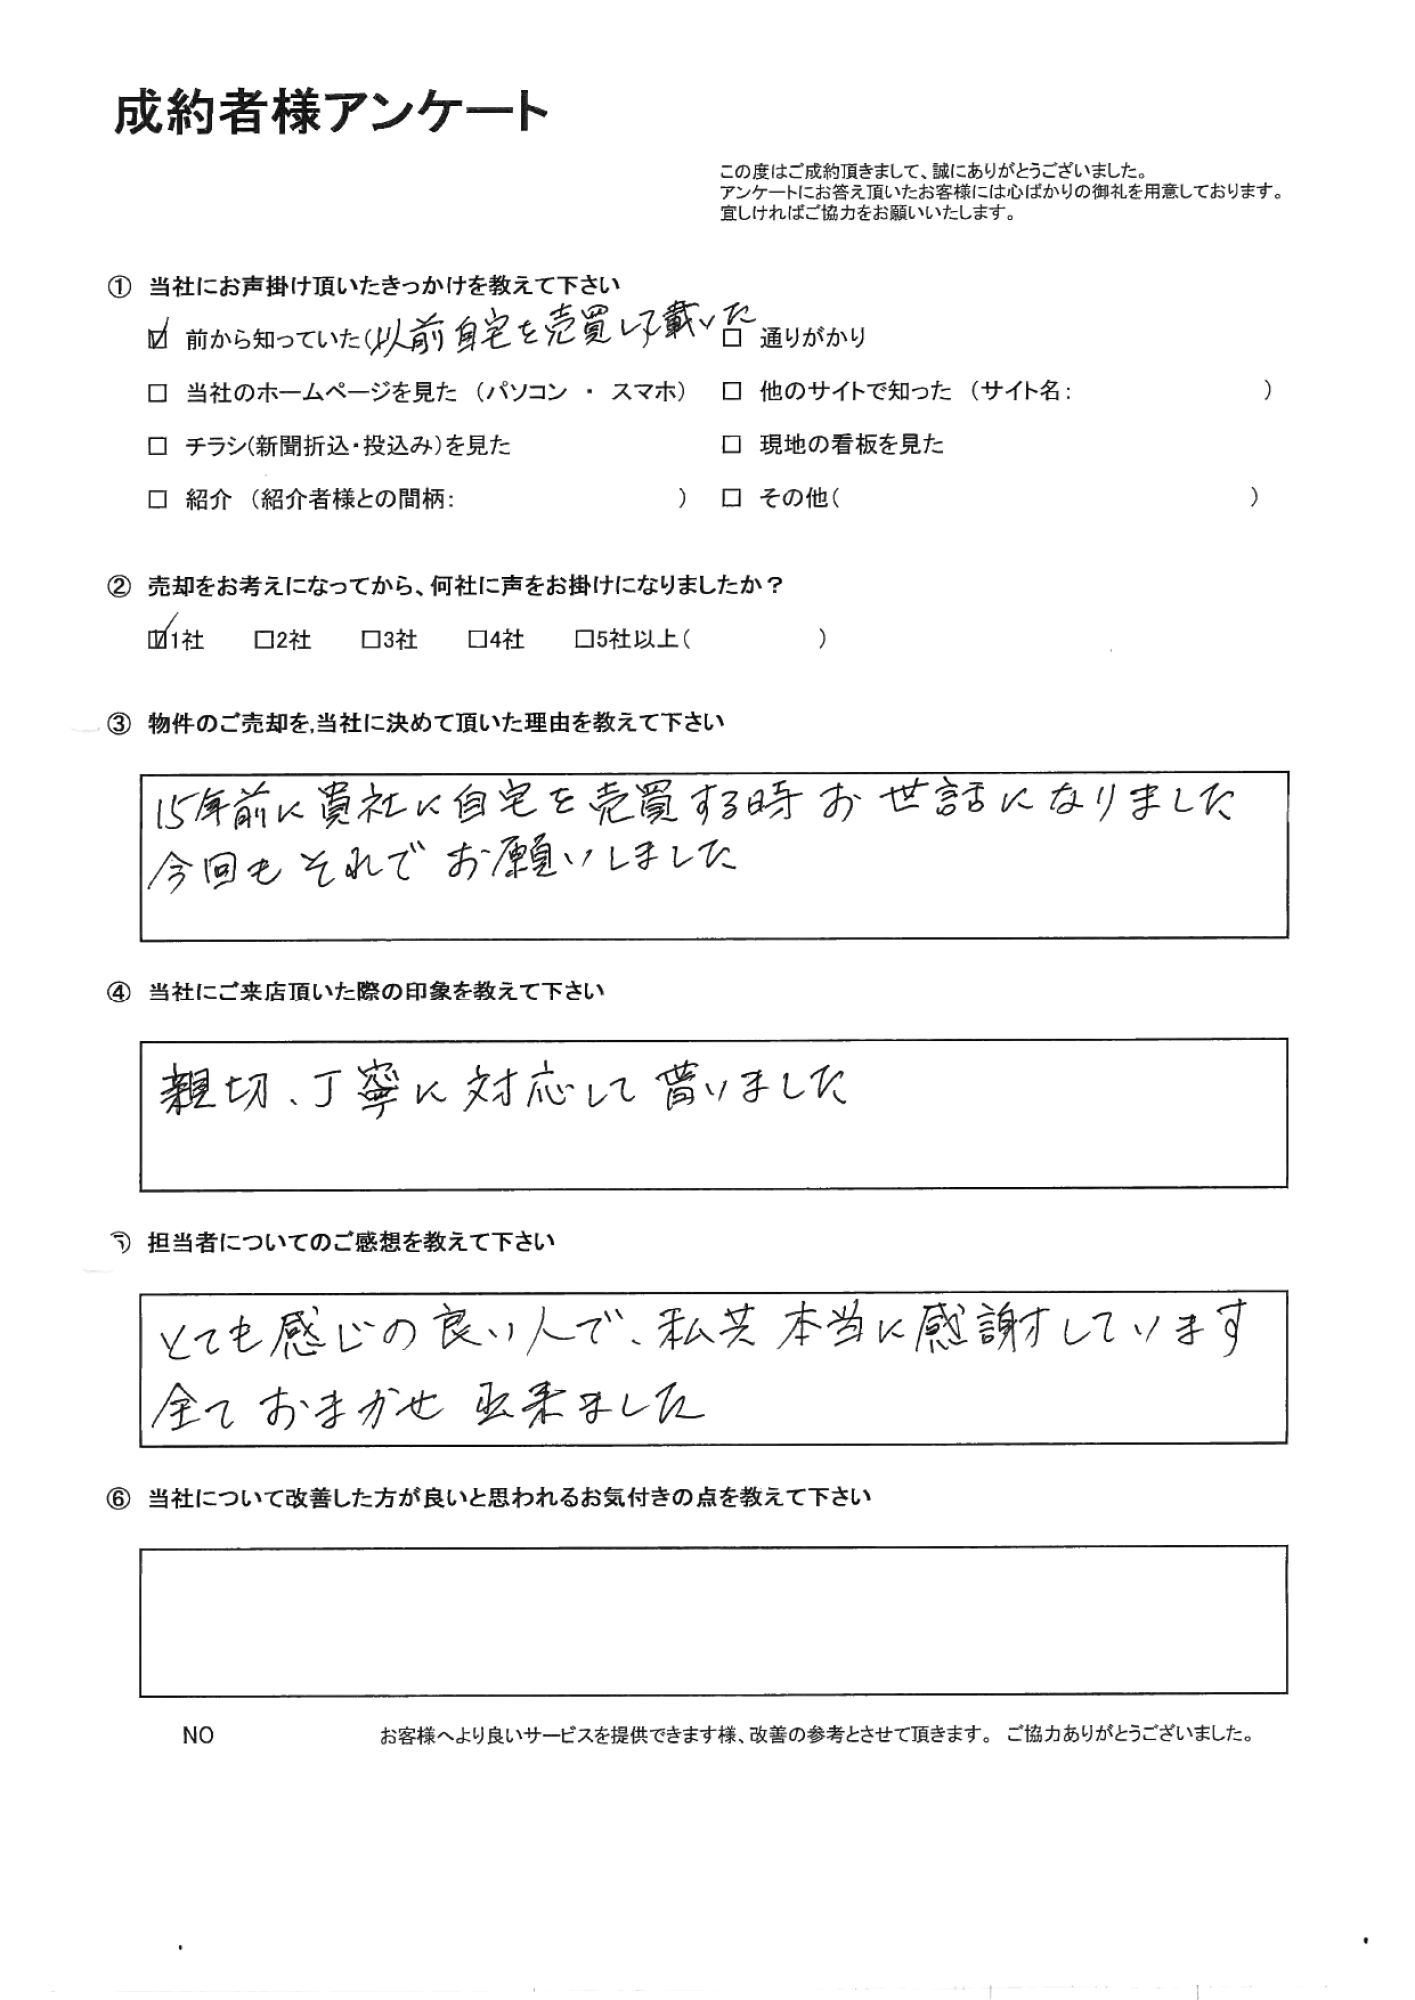 成約者様アンケート
この度はご成約頂きまして、誠にありがとうございました。
アンケートにお答え頂いたお客様には心ばかりの御礼を用意しております。
宜しければご協力をお願いいたします。
① 当社にお声掛け頂いたきっかけを教えて下さい
☑ 前から知っていた(以前自宅を売買して載いた □ 通りがかり
□ 当社のホームページを見た (パソコン ・ スマホ) □ 他のサイトで知った (サイト名: )
□ チラシ(新聞折込・投込み)を見た □ 現地の看板を見た
□ 紹介 (紹介者様との間柄: ) □ その他( )
② 売却をお考えになってから、何社に声をお掛けになりましたか?
☑1社 □2社 □3社 □4社 □5社以上( )
③ 物件のご売却を,当社に決めて頂いた理由を教えて下さい
15年前に貴社に自宅を売買する時お世話になりました
今回もそれでお願いしました
④ 当社にご来店頂いた際の印象を教えて下さい
親切、丁寧に対応して貰いました
⑤ 担当者についてのご感想を教えて下さい
とても感じの良い人で、私共本当に感謝しています
全ておまかせ出来ました
⑥ 当社について改善した方が良いと思われるお気付きの点を教えて下さい
NO お客様へより良いサービスを提供できます様、改善の参考とさせて頂きます。 ご協力ありがとうございました。